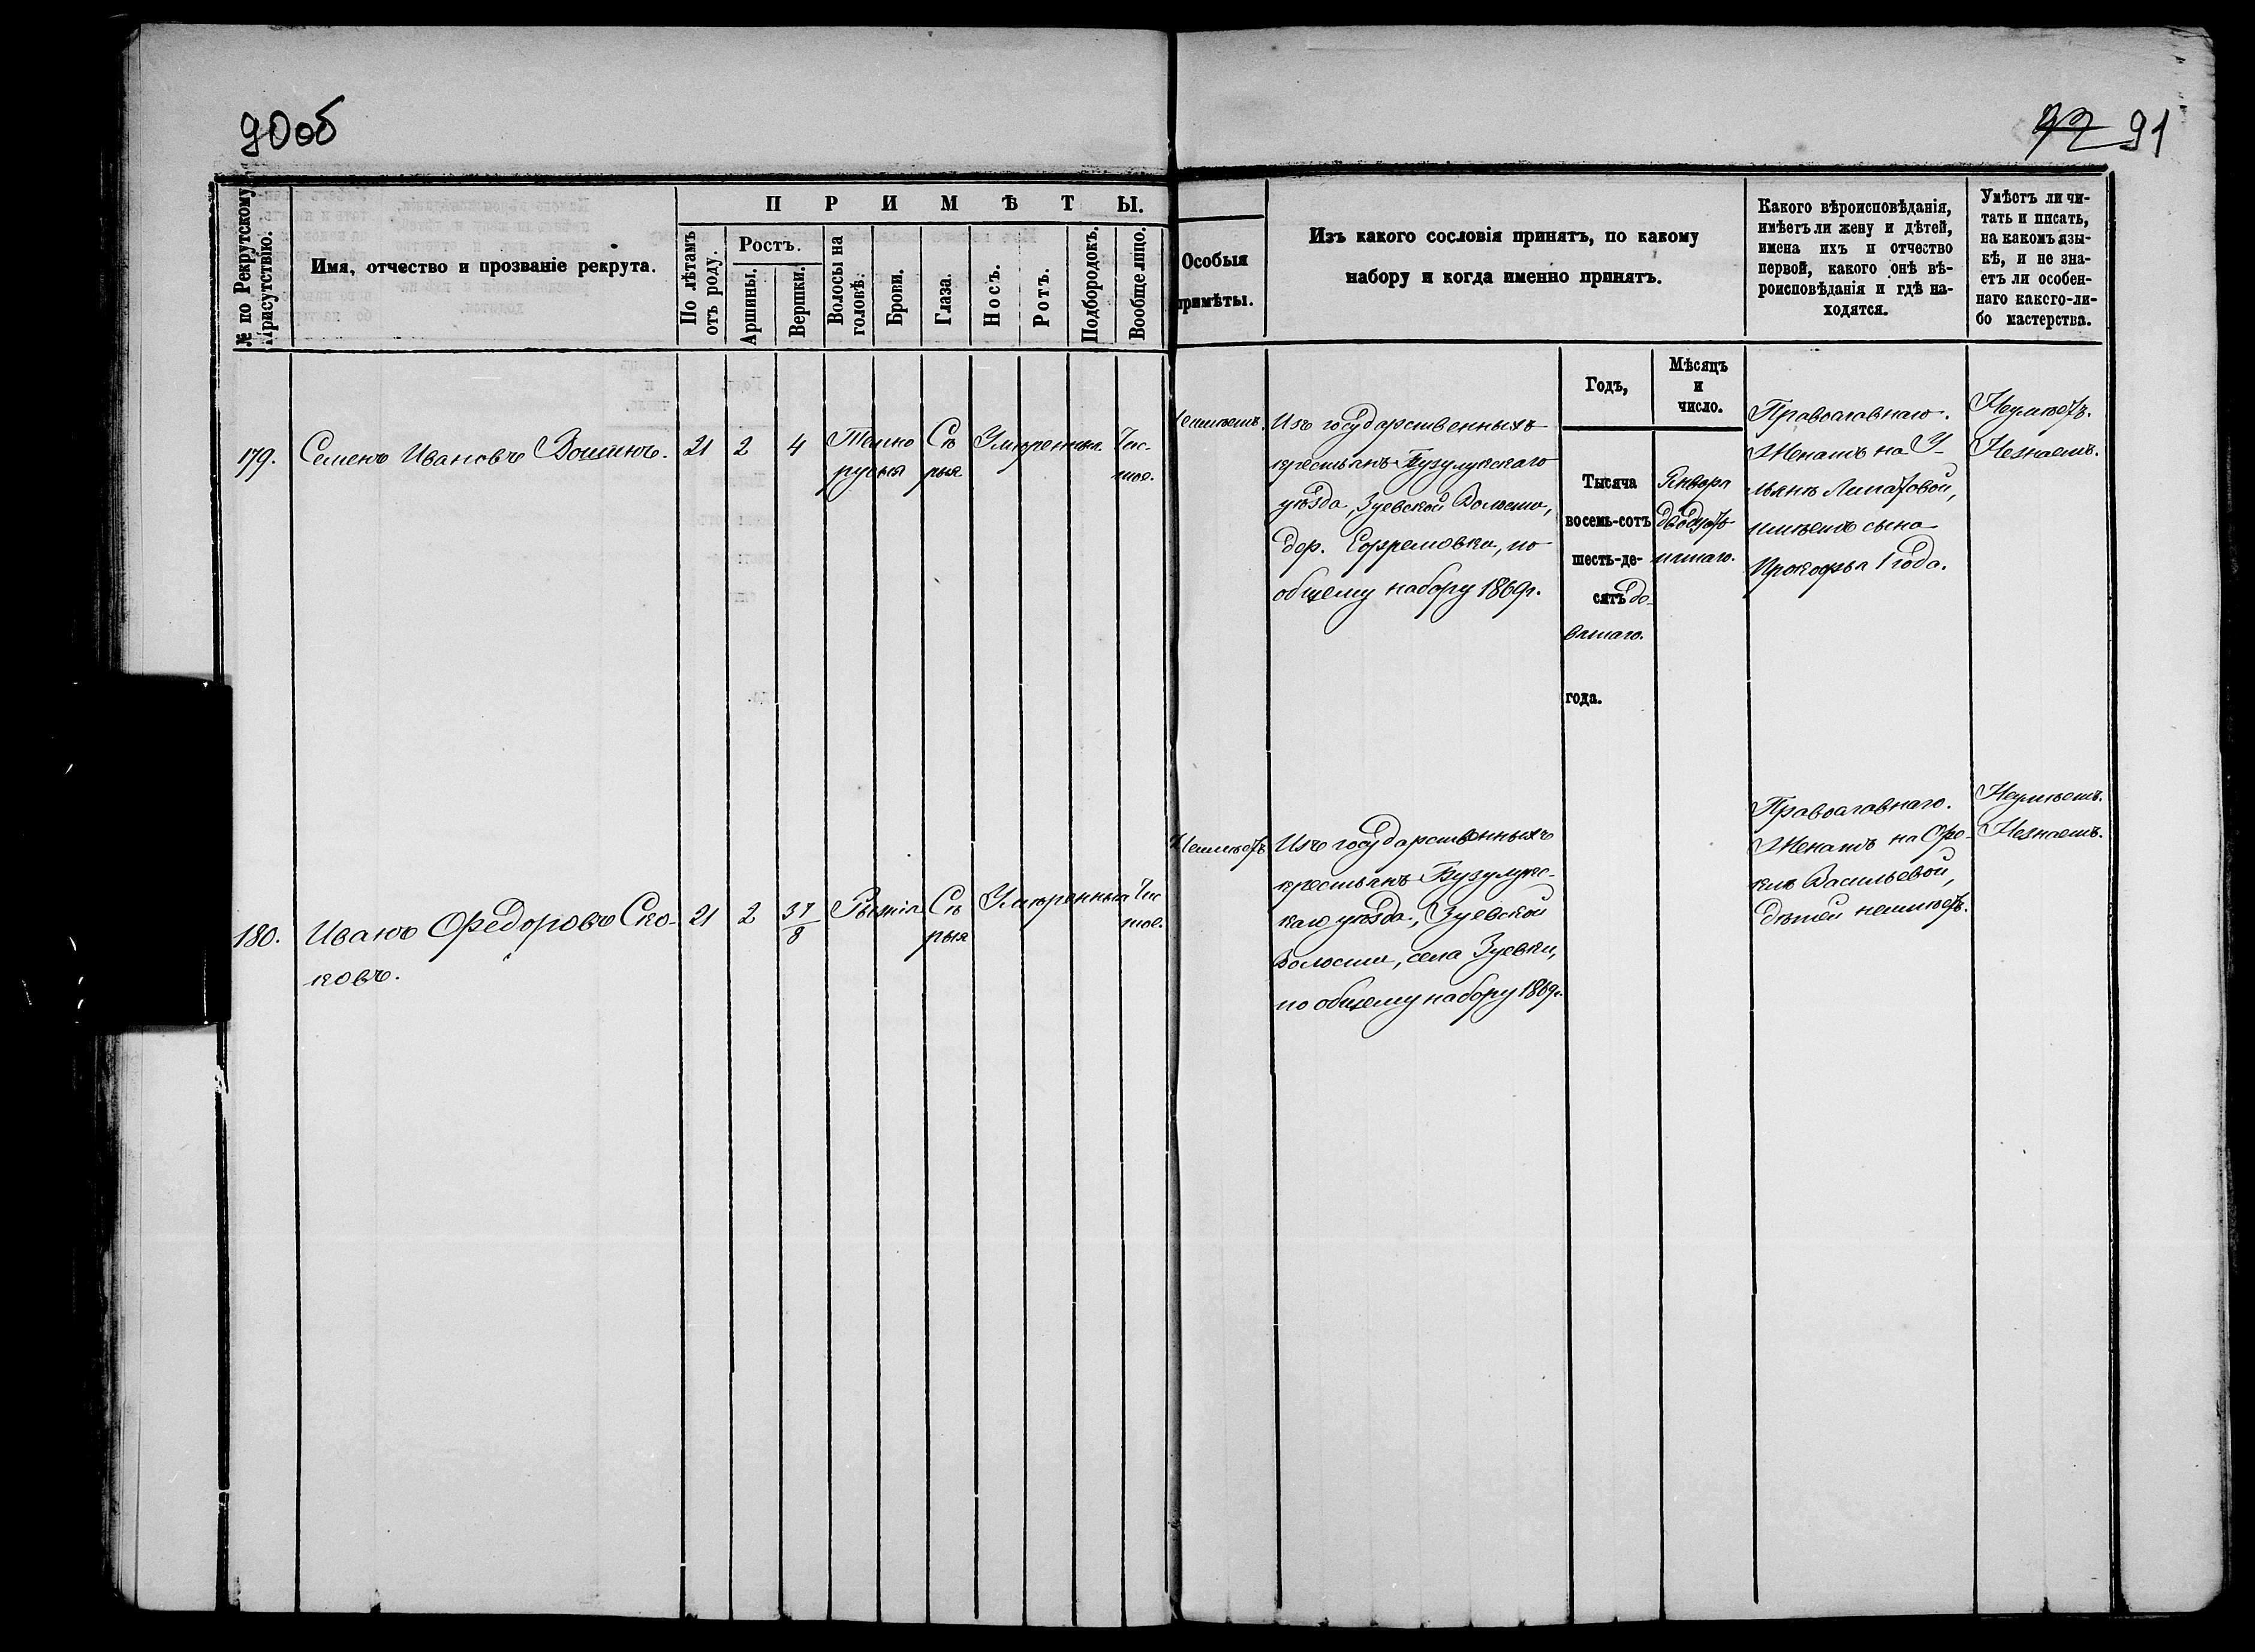 90об
92 91
№ по Рекрутскому Присутствію.
Имя, отчество и прозваніе рекрута.
ПРИМѢТЫ.
По лѣтамъ отъ роду.
Ростъ.
Аршины.
Вершки.
Волосы на головѣ.
Брови.
Глаза.
Носъ.
Ротъ.
Подбородокъ.
Вообще лицо.
Особыя
примѣты.
Изъ какого сословія принятъ, по какому
набору и когда именно принятъ.
Какого вѣроисповѣданія,
имѣетъ ли жену и дѣтей,
имена ихъ и отчество
первой, какого онѣ вѣ-
роисповѣданія и гдѣ на-
ходятся.
Умѣетъ ли чи-
тать и писать,
на какомъ язы-
кѣ, и не зна-
етъ ли особен-
наго какого-ли-
бо мастерства.
Годъ,
Мѣсяцъ
и
число.
179.
Семенъ Ивановъ Вошинъ.
21
2
4
Темно
русыя
Сѣ
рыя
Умѣренныя
Чис-
тое.
Неимѣетъ.
Изъ государственныхъ
крестьянъ Бузулукскаго
уѣзда, Зуевской Волости,
дер. Ефремовки, по
общему набору 1869г.
Тысяча
восемь-сотъ
шесть-де-
сятъ де-
вятаго.
года.
Января
двадцать
пятаго.
Православнаго.
Женатъ на У-
льянѣ Липатовой,
имѣетъ сына
Прокофья 1 года.
Неумѣетъ.
Незнаетъ.
180.
Иванъ Федоровъ Ско-
ковъ.
21
2
3 7/8
Рыжія
Сѣ
рыя
Умѣренныя
Чис
тое.
Неимѣетъ
Изъ государственныхъ
крестьянъ Бузулукс-
каго уѣзда, Зуевской
Волости, села Зуевки,
по общему набору 1869г.
Православнаго.
Женатъ на Фе-
клѣ Васильевой,
дѣтей неимѣетъ.
Неумѣетъ.
Незнаетъ.